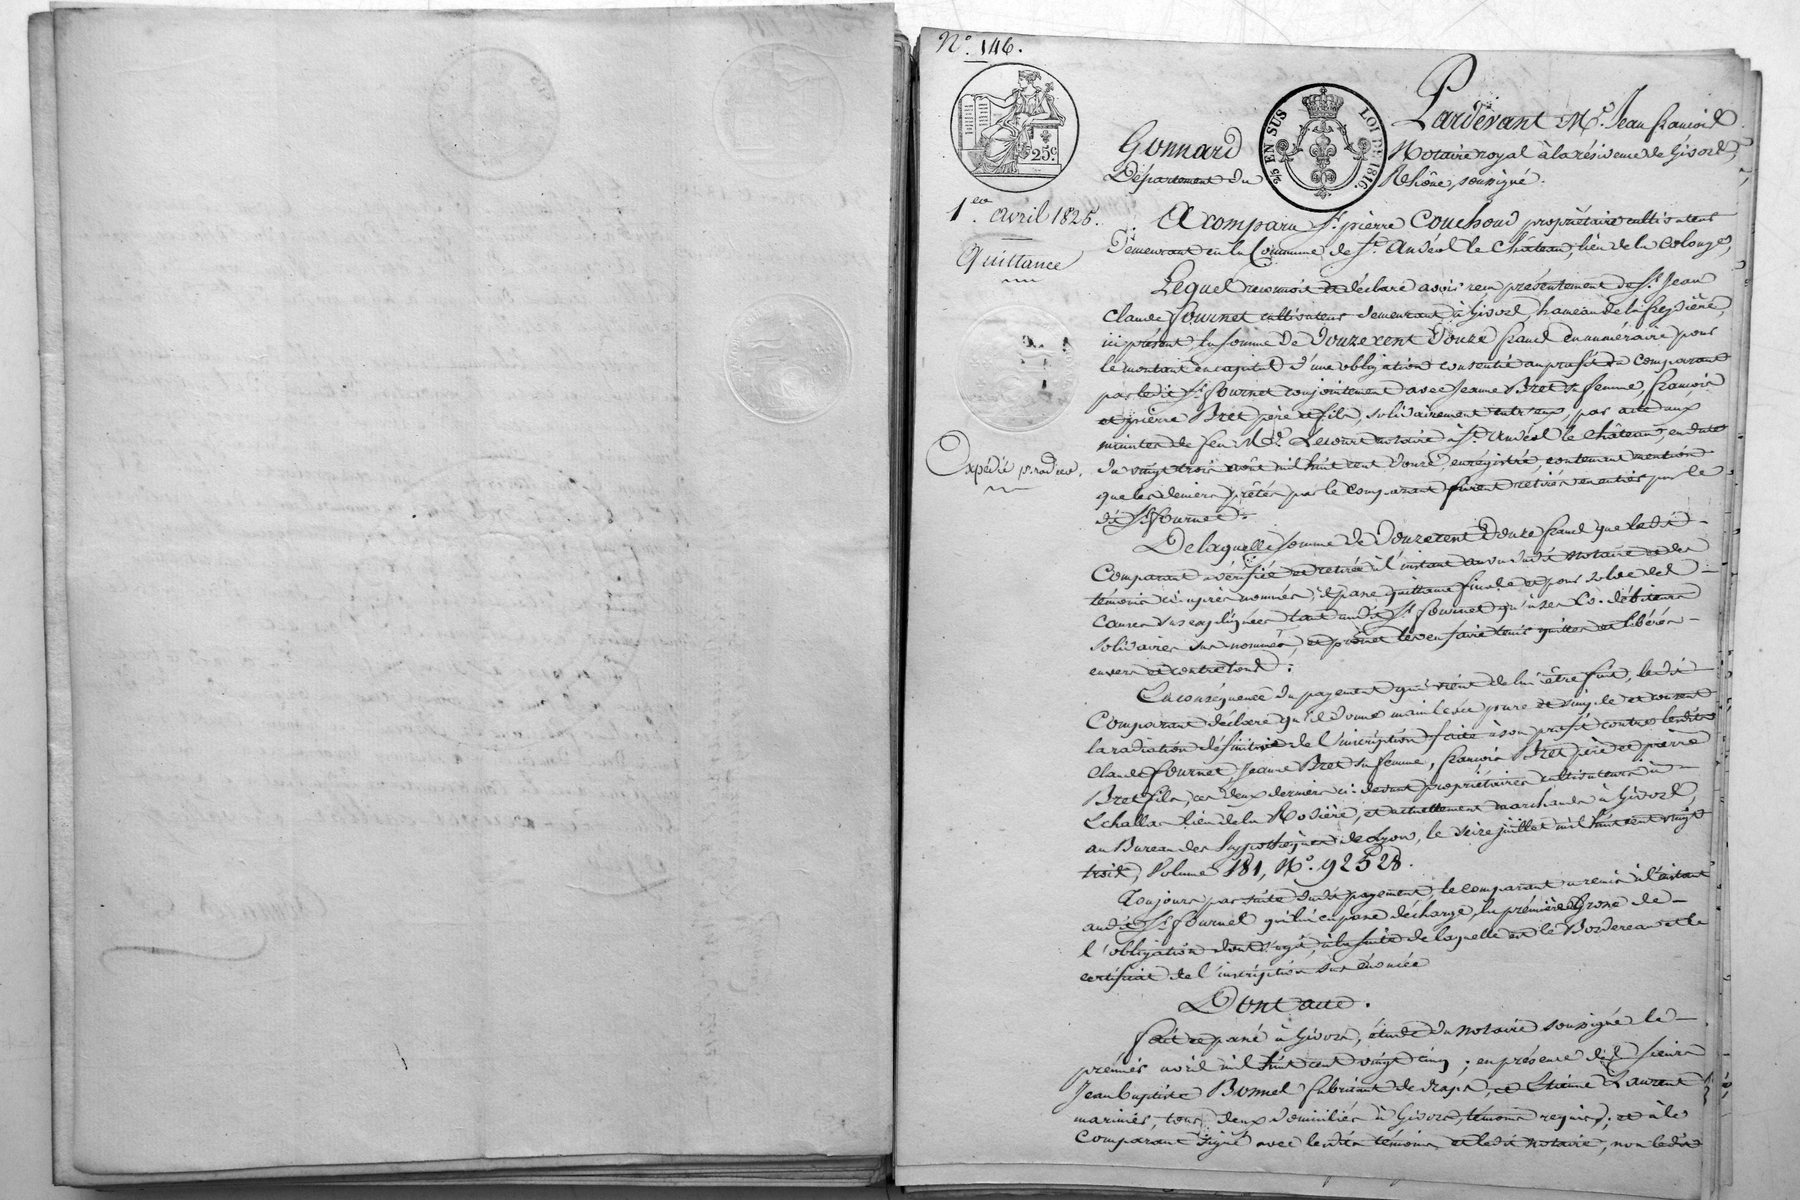 N.° 146.
25.c
2/5 EN SUS LOI DE 1816.
Pardevant M.e Jean françois
Gonnard Notaire royal à la résidence de Givors,
Département du Rhône, soussigné.
1.er avril 1825.
Quittance
A comparu S.r pierre Couchoud propriétaire cultivateur
Demeurant en la Commune de S.t Andéol le Château, lieu de la Colonge,
Lequel reconnoit et déclare avoir reçu présentement du S.r Jean
Claude fournet cultivateur demeurant à Givors, hameau de la freydière,
ici présent la somme de Douze cent Douze francs en numéraire pour
le montant en capital d'une obligation consentie au profit du comparant
par ledit S.r fournet conjointement avec Jeanne Bret sa femme, françois
et pierre Bret père et fils, solidairement entr'eux, par acte aux
minutes de feu M.e Lecourt notaire à S.t Andéol le Château, en date
Expédié p.r radier.
du vingt trois août mil huit cent douze enregistré, contenant mention
que les deniers prêtés par le comparant furent retirés en entier par le
dit S.r fournet.
De laquelle somme de Douze cent Douze francs que ledit
Comparant a vérifiée et retirée à l'instant au vu dudit notaire et des
témoins ci-après nommés, il passe quittance finale et pour solde des
causes sus expliquées tant audit S.r fournet qu'à ses Co-débiteurs
solidaires sus nommés, et promet les en faire tenir quittes et libérés
envers et contre tous.
En conséquence du payement qui vient de lui être fait, ledit
Comparant déclare qu'il donne main levée pure et simple et consent
la radiation définitive de l'inscription faite à son profit contre lesdits
Claude fournet, Jeanne Bret sa femme, françois Bret père et pierre
Bret fils, ces deux derniers ci-devant propriétaires cultivateurs à
Echallas lieu de la Rosière, et actuellement marchands à Givors,
au Bureau des hypothèques de Lyon, le seize juillet mil huit cent vingt
trois, Volume 181, N.° 92528.
Toujours par suite dudit payement, le comparant a remis à l'instant
audit S.r fournet qui lui en passe décharge, la première Grosse de
l'obligation dont s'agit, à la suite de laquelle est le Bordereau et le
certificat de l'inscription sus énoncée
Dont acte.
fait et passé à Givors, étude du notaire soussigné le
premier avril mil huit cent vingt cinq; en présence des sieurs
Jean baptiste Bonnel fabricant de draps, et Etienne Laurent
marinier, tous deux domiciliés à Givors, témoins requis; et a le
Comparant signé avec lesdits témoins, et ledit notaire, non ledit